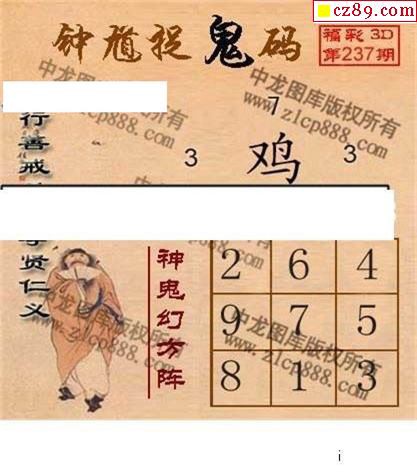 cz89.com
钟馗捉鬼码
福彩 3D
第237期
中龙图库版权所有
www.zlcp888.com
行善戒
贤仁义
7
3 鸡 3
神鬼幻方阵
2 6 4
9 7 5
8 1 3
中龙图库版权所有
www.zlcp888.com
i